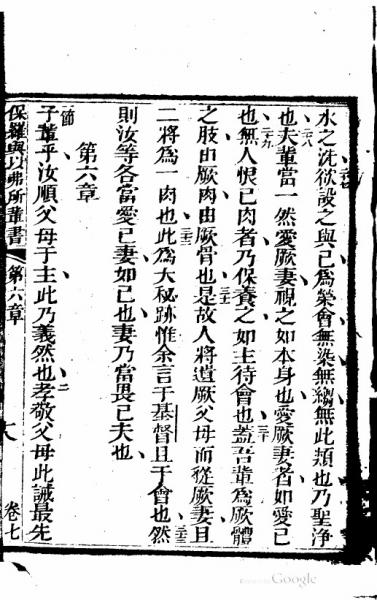 水之洗欲設之與己為榮會無染無縐無此類也乃聖淨
二八
也夫輩當一然愛厥妻視之如本身也愛厥妻者如愛己
二九
也無人恨己肉者乃保養之如主待會也蓋吾輩為厥體
三十
之肢由厥肉由厥骨也是故人將遺厥父母而從厥妻且
三一
二將為一肉也此為大秘跡惟余言于基督且于會也然
三二
三三
則汝等各當愛己妻如己也妻乃當畏己夫也
第六章
節
子輩乎汝順父母于主此乃義然也孝敬父母此誡最先
二
保羅與以弗所輩書
第六章
卷七
Google